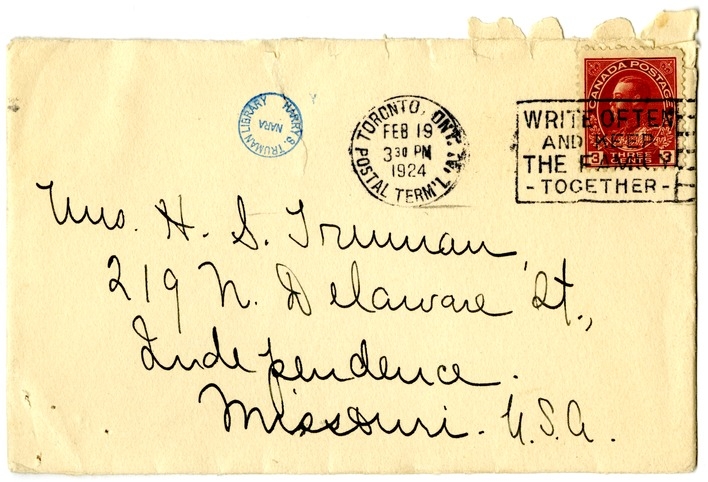 HARRY S. TRUMAN LIBRARY
NARA
TORONTO, ONT.
FEB 19
3 30 PM
1924
POSTAL TERM'L "A"
CANADA POSTAGE
3 THREE 3
WRITE OFTEN
AND KEEP
THE FAMILY
- TOGETHER -
Mrs. H. S. Truman,
219 N. Delaware St.,
Independence.
Missouri. U.S.A.